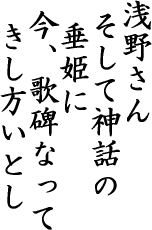 浅野さん
そして神話の
垂姫に
今、歌碑なって
きし方いとし